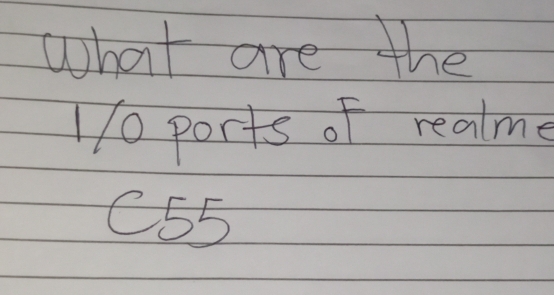 What are the
I/O ports of realme
C55